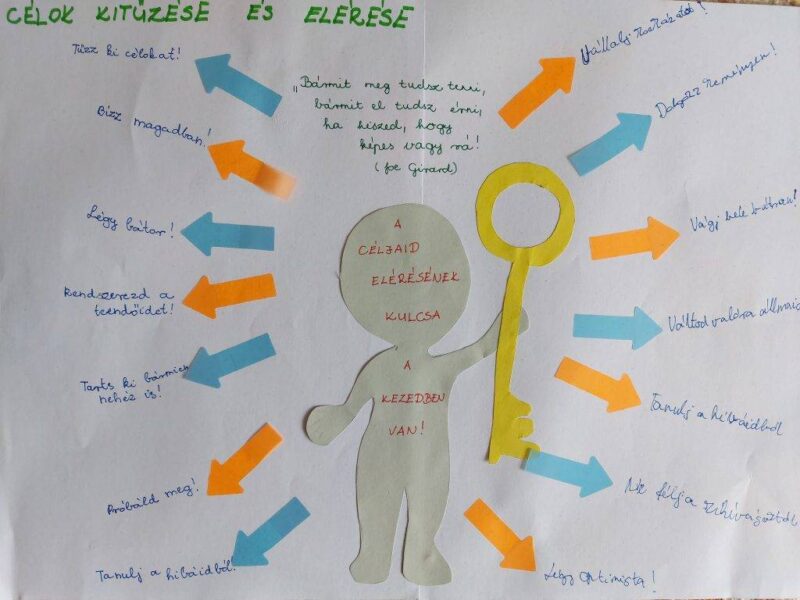 CÉLOK KITŰZÉSE ÉS ELÉRÉSE
Tűzz ki célokat!
Bízz magadban!
Légy bátor!
Rendszerezd a
teendőidet!
Tarts ki bármilyen
nehéz is!
Próbáld meg!
Tanulj a hibáidból!
„Bármit meg tudsz tenni,
bármit el tudsz érni,
ha hiszed, hogy
képes vagy rá!
(Joe Girard)
A
CÉLJAID
ELÉRÉSÉNEK
KULCSA
A
KEZEDBEN
VAN!
Vállalj
reményen!
Vágj bele bátran!
Váltsd valóra álmaid
Tanulj a hibáidból
Ne félj a kihívásoktól
Légy optimista!